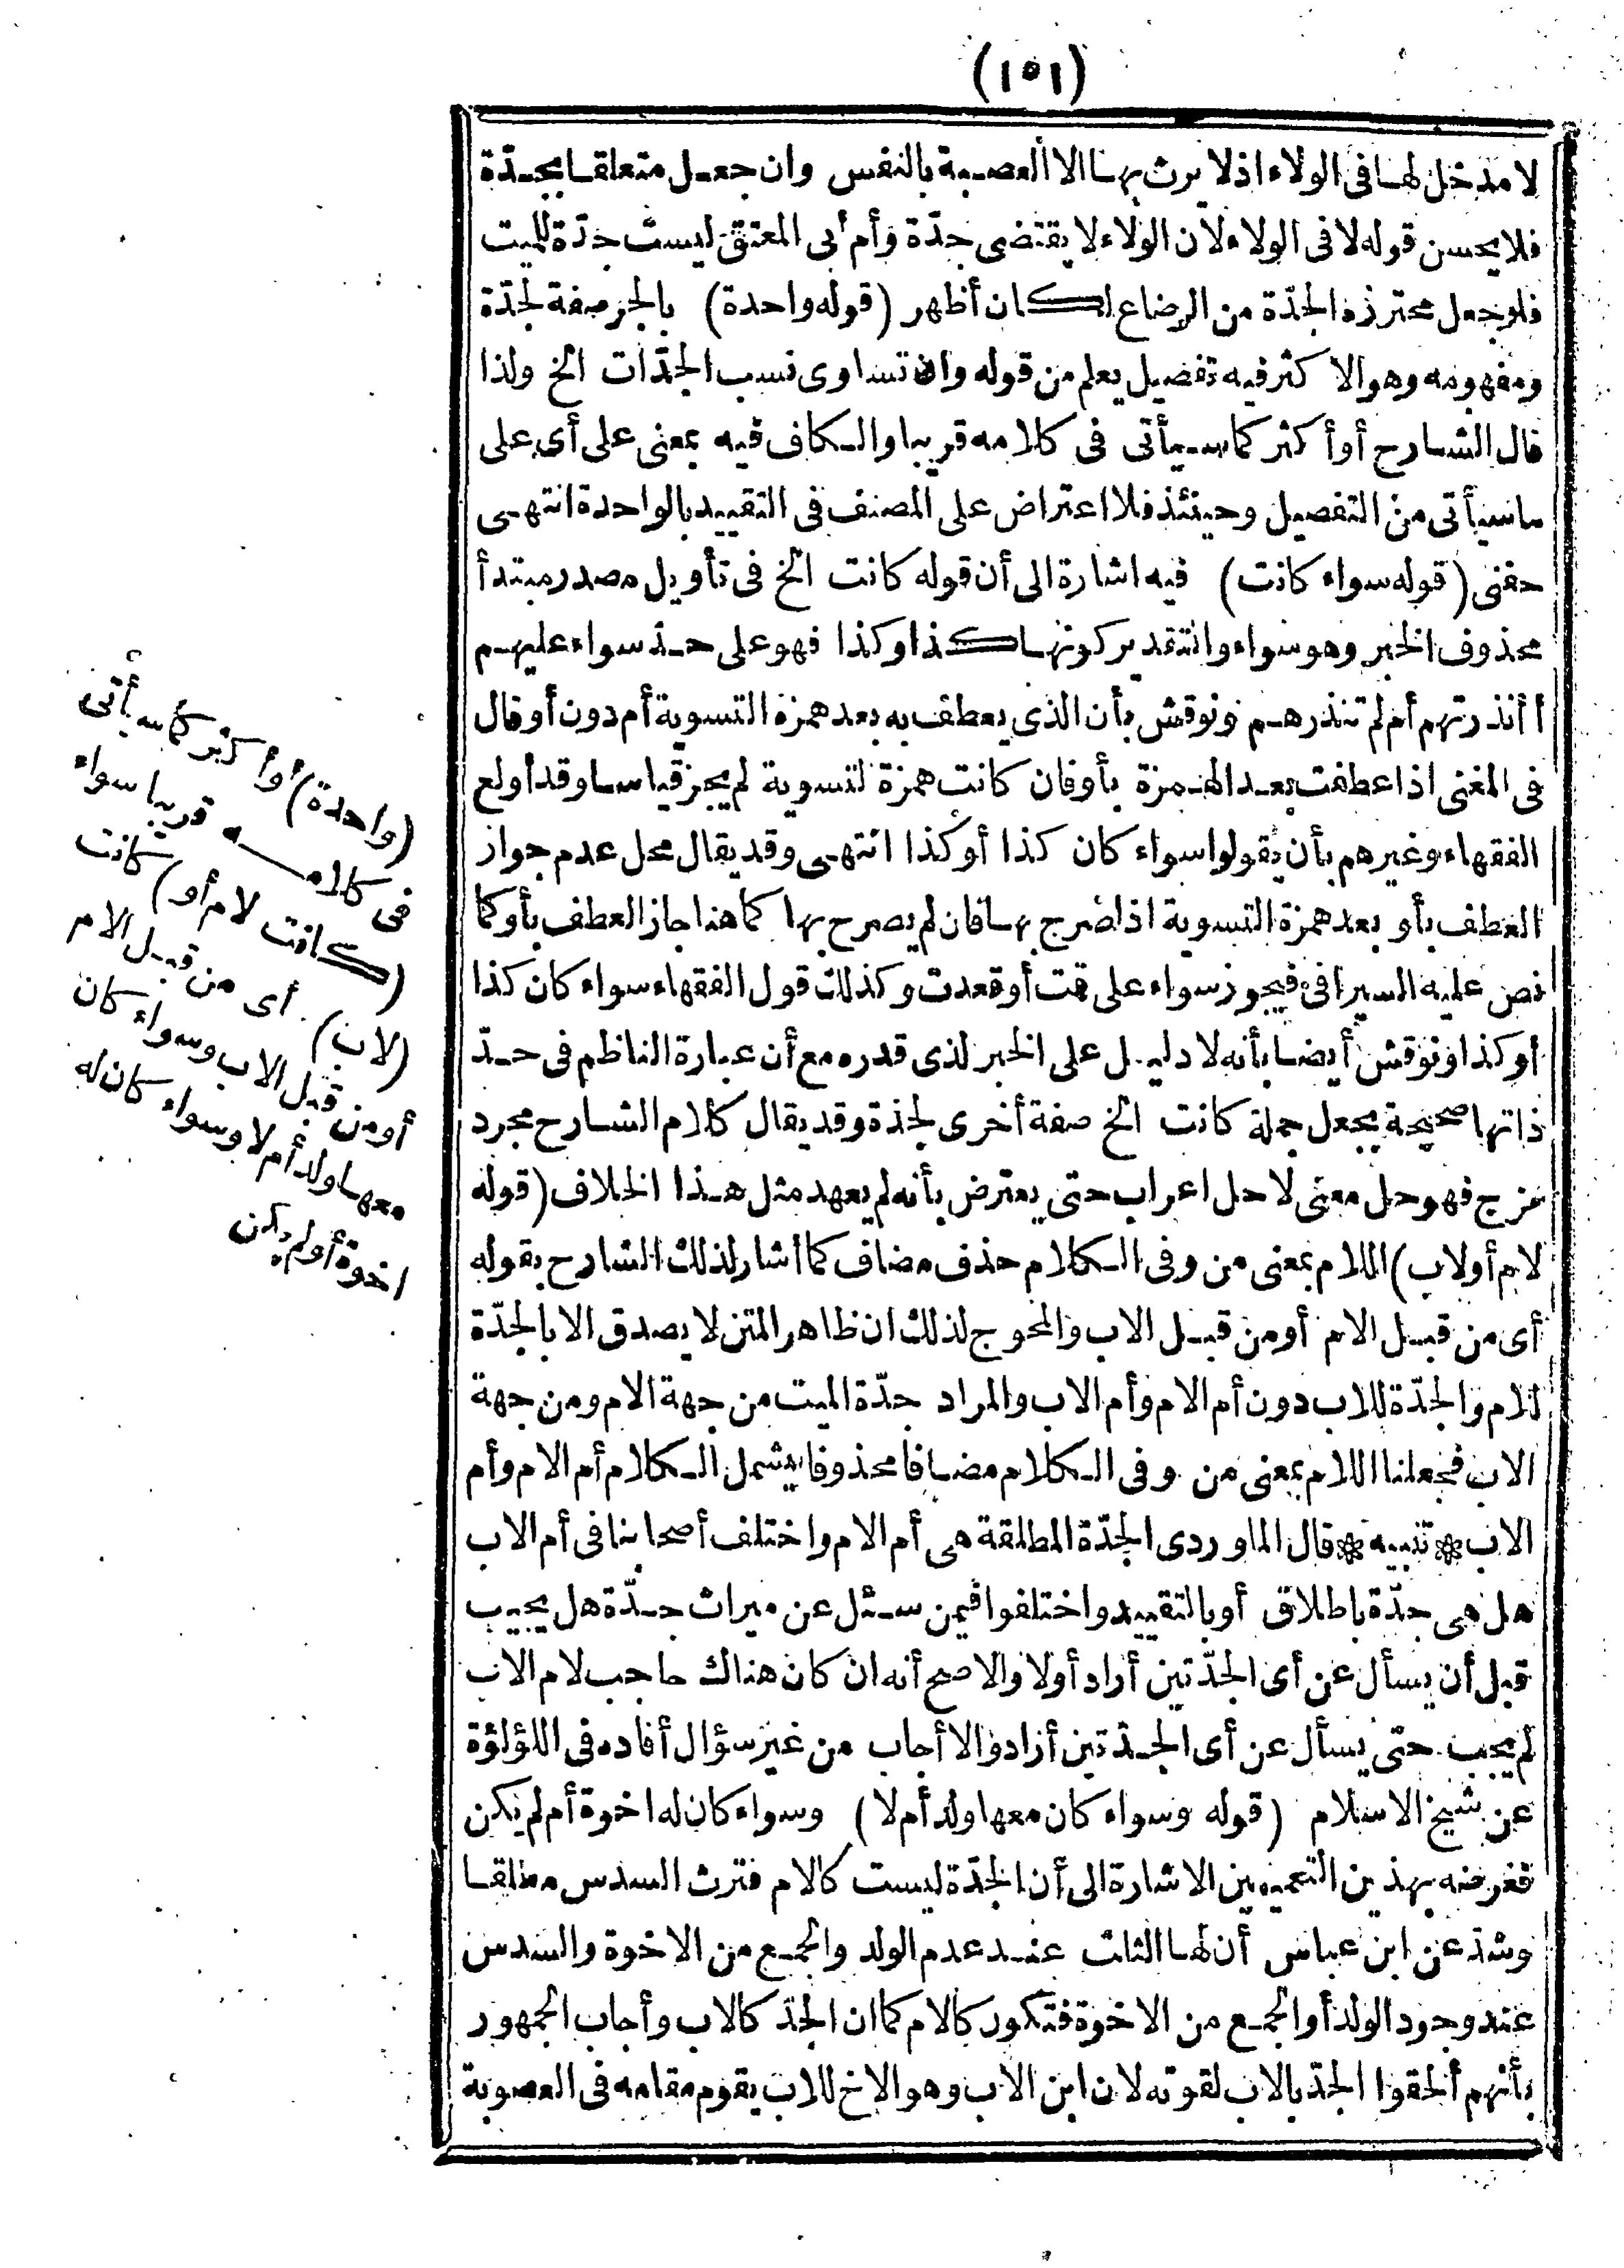 (١٥١)
لا مدخل لها فى الولاء اذ لا يرث بها الا العصبة بالنفس وان جعل متعلقا بجدّة
فلا يحسن قوله لا فى الولاء لان الولاء لا يقتضى جدّة وأم أبى المعتق ليست جدّة للميت
فلو جعل محترزه الجدّة من الرضاع لكان أظهر (قوله واحدة) بالجر صفة لجدّة
ومفهومه وهو الاكثر فيه تفصيل يعلم من قوله وان تساوى نسب الجدّات الخ ولذا
قال الشارح أو أكثر كما سيأتى فى كلامه قريبا والكاف فيه بمعنى على أى على
ما سيأتى من التفصيل وحينئذ فلا اعتراض على المصنف فى التقييد بالواحدة انتهى
حفنى (قوله سواء كانت) فيه اشارة الى أن قوله كانت الخ فى تأويل مصدر مبتدأ
محذوف الخبر وهو سواء والتقدير كونها كذا وكذا فهو على حدّ سواء عليهم
أأنذرتهم أم لم تنذرهم ونوقش بأن الذى يعطف به بعد همزة التسوية أم دون أو قال
فى المغنى اذا عطفت بعد الهمزة بأو فان كانت همزة لتسوية لم يجز قياسا وقد أولع
الفقهاء وغيرهم بأن يقولوا سواء كان كذا أو كذا انتهى وقد يقال محل عدم جواز
العطف بأو بعد همزة التسوية اذا صرح بها فان لم يصرح بها كما هنا جاز العطف بأو كما
نص عليه السيرافى فيجوز سواء على قمت أو قعدت وكذلك قول الفقهاء سواء كان كذا
أو كذا ونوقش أيضا بأنه لا دليل على الخبر لذى قدره مع أن عبارة الناظم فى حدّ
ذاتها صحيحة بجعل جملة كانت الخ صفة أخرى لجدّة وقد يقال كلام الشارح مجرد
مزج فهو حل معنى لا حل اعراب حتى يعترض بأنه لم يعهد مثل هذا الخلاف (قوله
لام أو لاب) اللام بمعنى من وفى الكلام حذف مضاف كما أشار لذلك الشارح بقوله
أى من قبل الام أو من قبل الاب والمحوج لذلك ان ظاهر المتن لا يصدق الا بالجدّة
للام والجدّة للاب دون أم الام وأم الاب والمراد جدّة الميت من جهة الام ومن جهة
الاب فجعلنا اللام بمعنى من وفى الكلام مضافا محذوفا ليشمل الكلام أم الام وأم
الاب * تنبيه * قال الماوردى الجدّة المطلقة هى أم الام واختلف أصحابنا فى أم الاب
هل هى جدّة باطلاق أو بالتقييد واختلفوا فيمن سئل عن ميراث جدّة هل يجيب
قبل أن يسأل عن أى الجدّتين أراد أولا والاصح أنه ان كان هناك حاجب لام الاب
لم يجب حتى يسأل عن أى الجدّتين أراد والا أجاب من غير سؤال أفاده فى اللؤلؤة
عن شيخ الاسلام (قوله وسواء كان معها ولد أم لا) وسواء كان له اخوة أم لم يكن
فغرضه بهذين التعميمين الاشارة الى أن الجدّة ليست كالام فترث السدس مطلقا
وشذ عن ابن عباس أن لها الثلث عند عدم الولد والجمع من الاخوة والسدس
عند وجود الولد أو الجمع من الاخوة فتكون كالام كما ان الجدّ كالاب وأجاب الجمهور
بأنهم ألحقوا الجدّ بالاب لقوته لان ابن الاب وهو الاخ للاب يقوم مقامه فى العصوبة
(واحدة) أو أكثر كما سيأتى
فى كلامه قريبا سواء
(كانت لام أو) كانت
(لاب) أى من قبل الام
أو من قبل الاب وسواء كان
معها ولد أم لا وسواء كان له
اخوة أو لم يكن